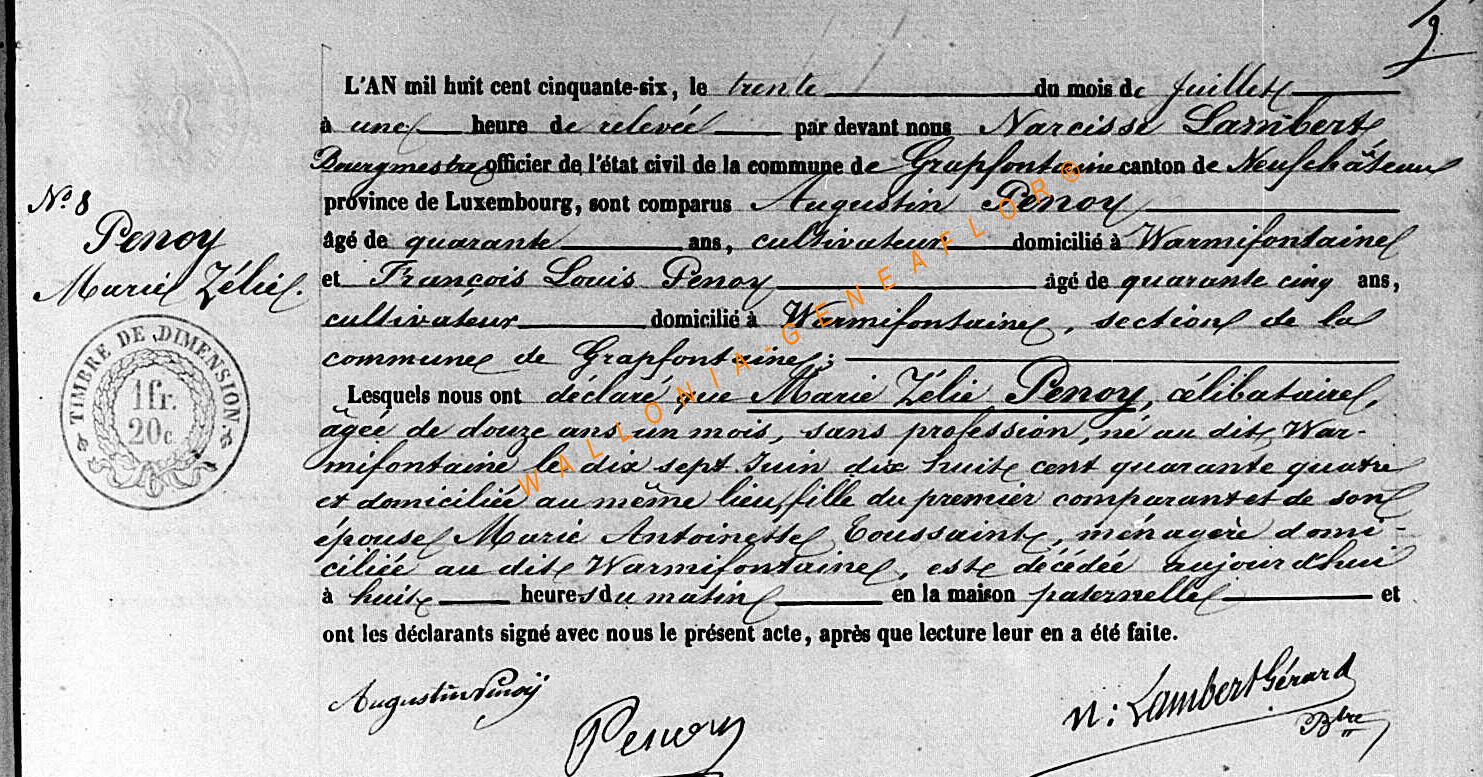 L'AN mil huit cent cinquante-six, le trente du mois de Juillet
à une heure de relevée par devant nous Narcisse Lambert
Bourgmestre officier de l'état civil de la commune de Grapfontaine canton de Neufchâteau
province de Luxembourg, sont comparus Augustin Penoy
âgé de quarante ans, cultivateur domicilié à Warmifontaine
et François Louis Penoy âgé de quarante cinq ans,
cultivateur domicilié à Warmifontaine, section de la
commune de Grapfontaine;
Lesquels nous ont déclaré que Marie Zélie Penoy, célibataire,
âgée de douze ans un mois, sans profession, né au dit War-
mifontaine le dix sept Juin dix huit cent quarante quatre
et domiciliée au même lieu, fille du premier comparant et de son
épouse Marie Antoinette Toussaint, ménagère domi-
ciliée au dit Warmifontaine, est décédée aujourd'hui
à huit heures du matin en la maison paternelle et
ont les déclarants signé avec nous le présent acte, après que lecture leur en a été faite.
Augustin Penoÿ
Penoy
N: Lambert Gérard
Btre
N.º 8
Penoy
Marie Zélie.
TIMBRE DE DIMENSION
1fr.
20c.
WALLONIA-GENEAFLOR®